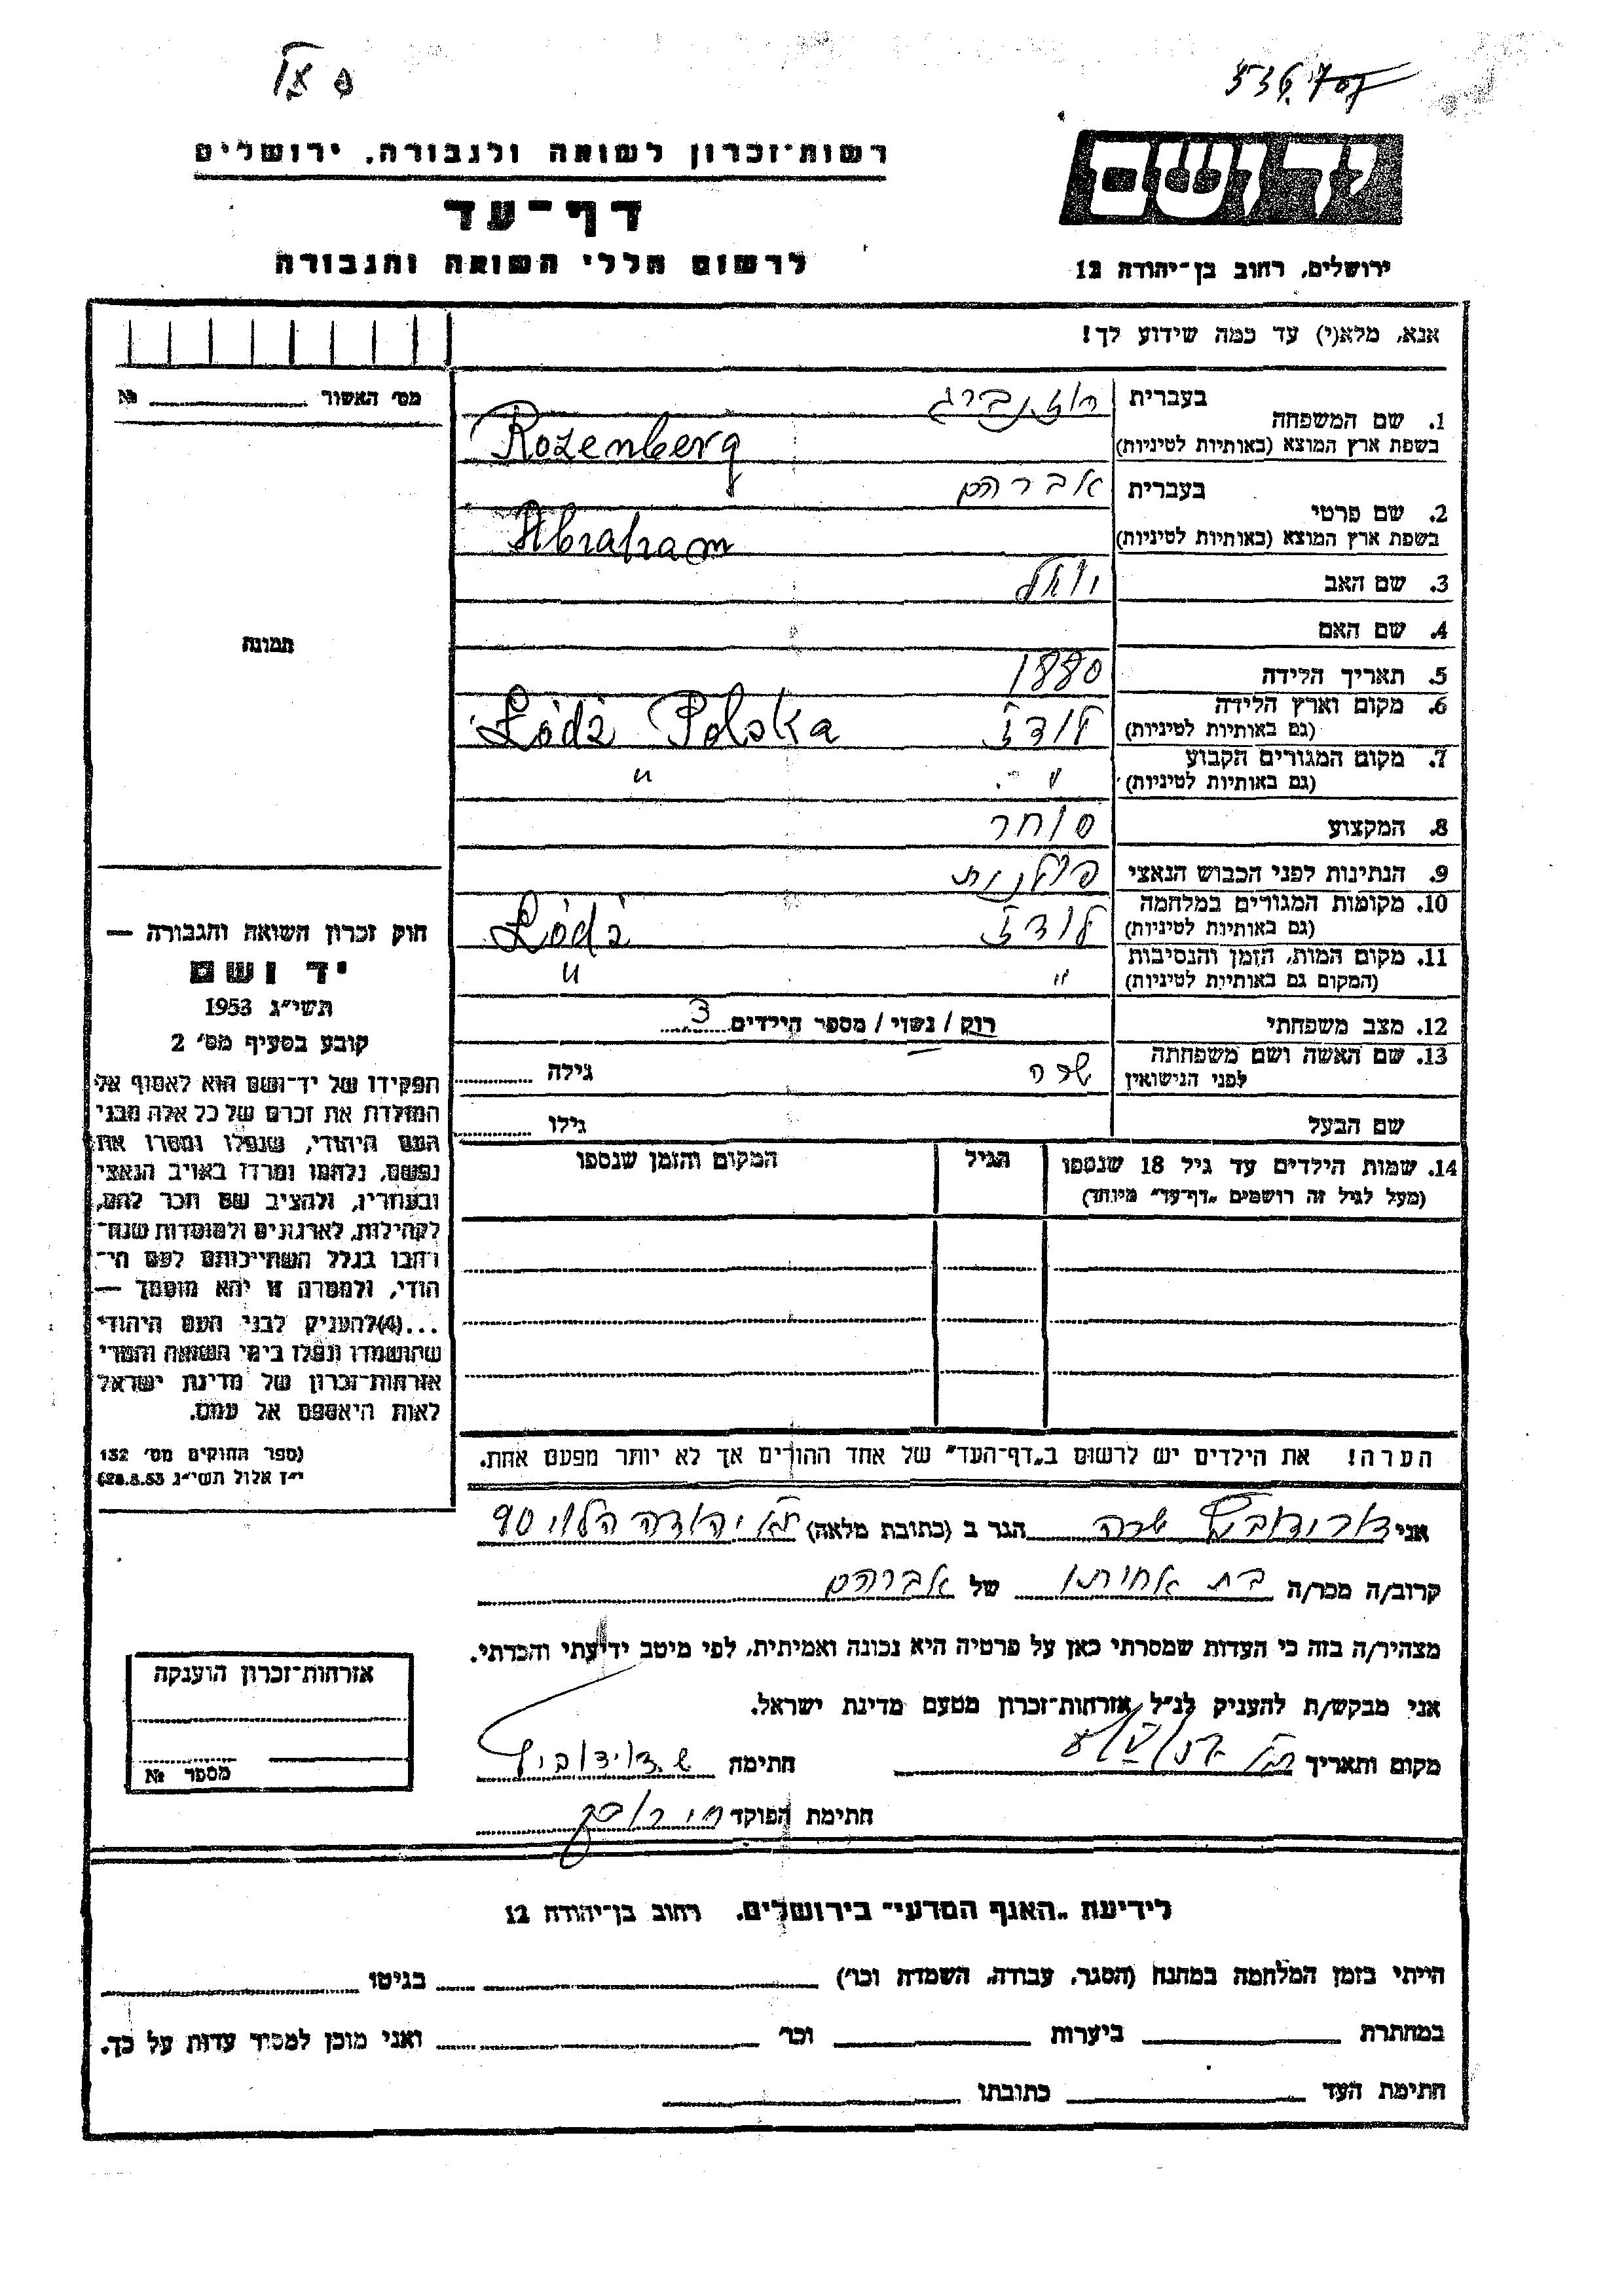 רשות־זכרון לשואה ולגבורה, ירושלים
דף־עד
לרשום חללי השואה והגבורה
יד ושם
ירושלים, רחוב בן־יהודה 12
אנא, מלא(י) עד כמה שידוע לך!
מס׳ האשור №
בעברית רוזנברג
1. שם המשפחה
בשפת ארץ המוצא (באותיות לטיניות) Rozenberg
בעברית אברהם
2. שם פרטי
בשפת ארץ המוצא (באותיות לטיניות) Abraham
3. שם האב
4. שם האם
5. תאריך הלידה 1880
6. מקום וארץ הלידה
(גם באותיות לטיניות) לודז Łódź Polska
7. מקום המגורים הקבוע
(גם באותיות לטיניות) " "
8. המקצוע סוחר
9. הנתינות לפני הכבוש הנאצי פולנית
10. מקומות המגורים במלחמה
(גם באותיות לטיניות) לודז Łódź
11. מקום המות, הזמן והנסיבות
(המקום גם באותיות לטיניות) " "
12. מצב משפחתי רוק / נשוי / מספר הילדים 3
13. שם האשה ושם משפחתה
לפני הנישואין שרה גילה
שם הבעל גילו
14. שמות הילדים עד גיל 18 שנספו הגיל המקום והזמן שנספו
(מעל לגיל זה רושמים „דף־עד” מיוחד)
הערה! את הילדים יש לרשום ב„דף־העד” של אחד ההורים אך לא יותר מפעם אחת.
תמונה
חוק זכרון השואה והגבורה —
יד ושם
תשי״ג 1953
קובע בסעיף מס׳ 2
תפקידו של יד־ושם הוא לאסוף אל
המולדת את זכרם של כל אלה מבני
העם היהודי, שנפלו ומסרו את
נפשם, נלחמו ומרדו באויב הנאצי
ובעוזריו, ולהציב שם וזכר להם,
לקהילות, לארגונים ולמוסדות שנח־
רבו בגלל השתייכותם לעם הי־
הודי, ולמטרה זו יהא מוסמך —
...(4)להעניק לבני העם היהודי
שהושמדו ונפלו בימי השואה והמרי
אזרחות־זכרון של מדינת ישראל
לאות היאספם אל עמם.
(ספר החוקים מס׳ 132
י״ז אלול תשי״ג 28.8.53)
אני דוידוביץ שרה הגר ב (כתובת מלאה) ת״א יהודה הלוי 90
קרוב/ה מכר/ה בת אחותו של אברהם
מצהיר/ה בזה כי העדות שמסרתי כאן על פרטיה היא נכונה ואמיתית, לפי מיטב ידיעתי והכרתי.
אני מבקש/ת להעניק לנ״ל אזרחות־זכרון מטעם מדינת ישראל.
מקום ותאריך חתימה ש. דוידוביץ
חתימת הפוקד
אזרחות־זכרון הוענקה
מספר №
לידיעת „האגף המדעי” בירושלים, רחוב בן־יהודה 12
הייתי בזמן המלחמה במחנה (הסגר, עבודה, השמדה וכו׳) בגיטו
במחתרת ביערות וכו׳ ואני מוכן למסיר עדות על כך.
חתימת העד כתובתו